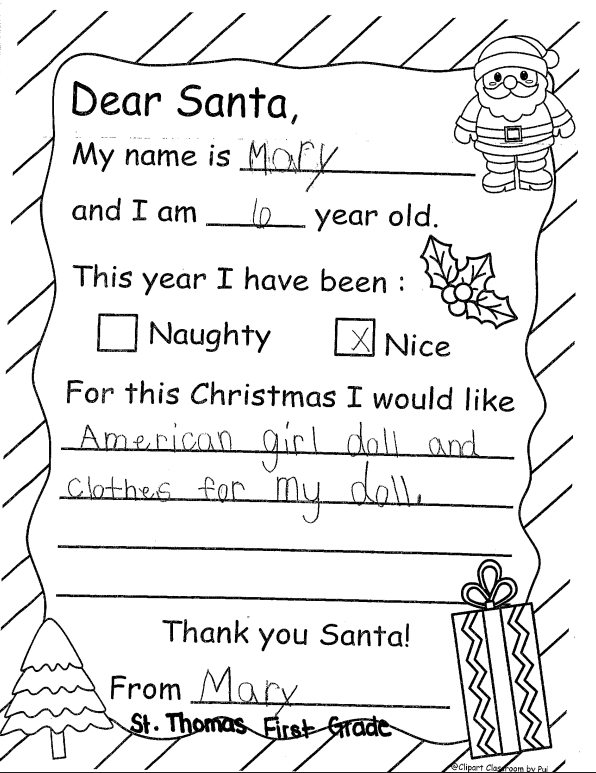 Dear Santa,
My name is Mary
and I am 6 year old.
This year I have been :
Naughty x Nice
For this Christmas I would like
American girl doll and
clothes for my doll.
Thank you Santa!
From Mary
St. Thomas First Grade
@Clipart Classroom by Pui